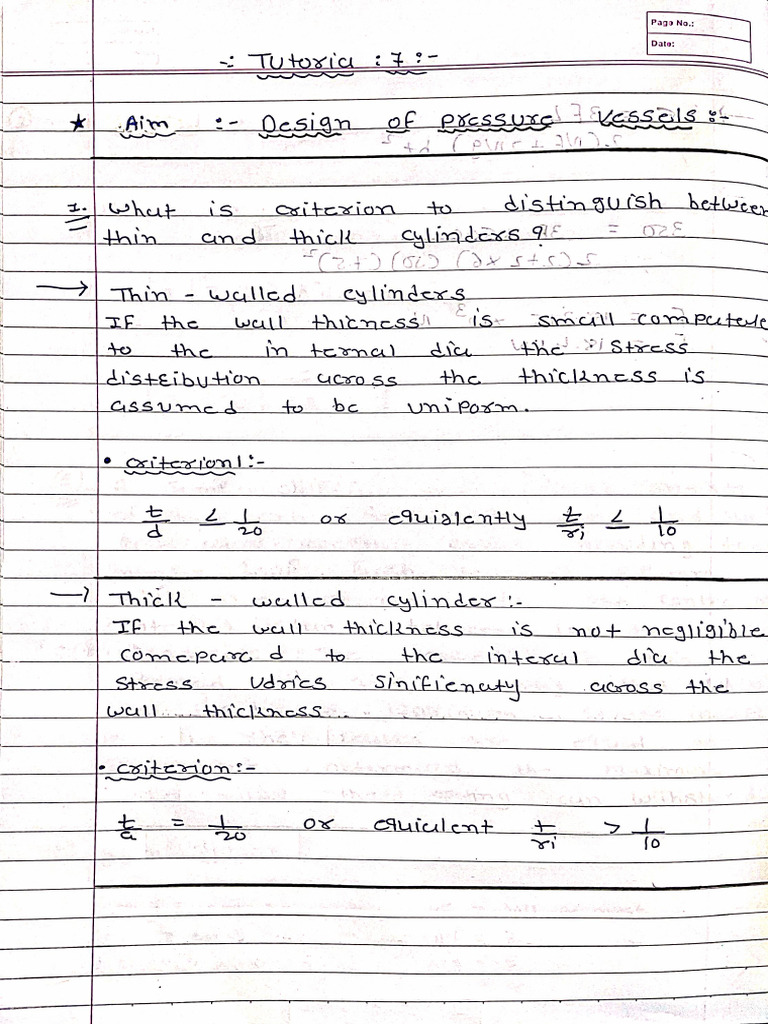 Page No.:
Date:
-: Tutoria : 7 :-
★ Aim :- Design of pressure vessels :-
1. What is criterion to distinguish between
thin and thick cylinders ?
→ Thin - walled cylinders
If the wall thicness is small compatele
to the in ternal dia the stress
disteibution across the thickness is
assumed to be uniporm.
• criterion :-
t/d ≤ 1/20 or equialently t/ri ≤ 1/10
→ Thick - walled cylinder :-
If the wall thickness is not negligible
comepare d to the interal dia the
stress varies sinifienaty across the
wall thickness
• criterion :-
t/d = 1/20 or equialent t/ri > 1/10